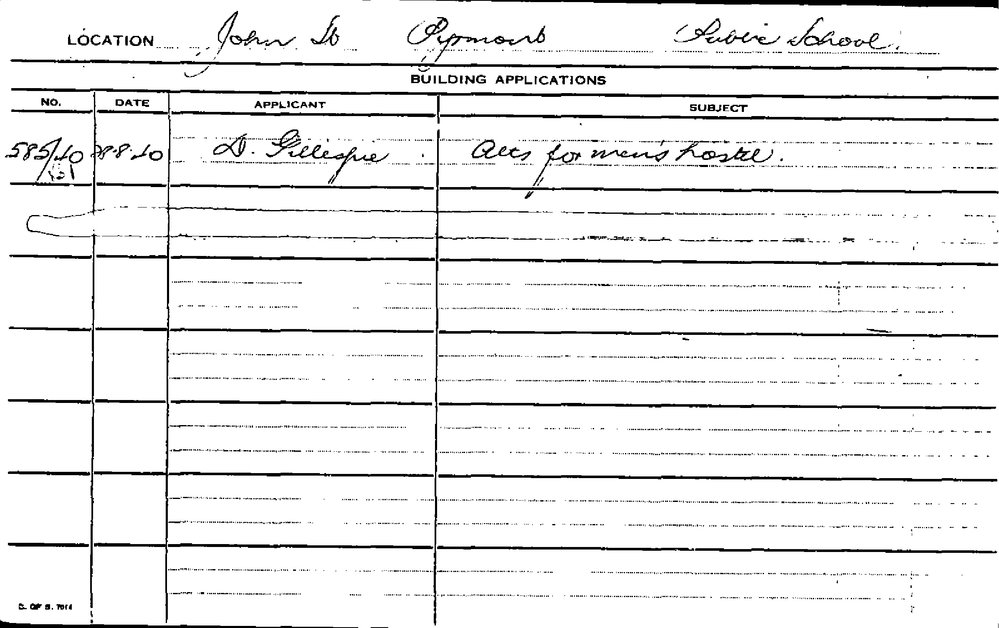 LOCATION John St Pyrmont Public School.
BUILDING APPLICATIONS
NO. DATE APPLICANT SUBJECT
585/40 28.8.40 D. Gillespie Alts for men's hostel.